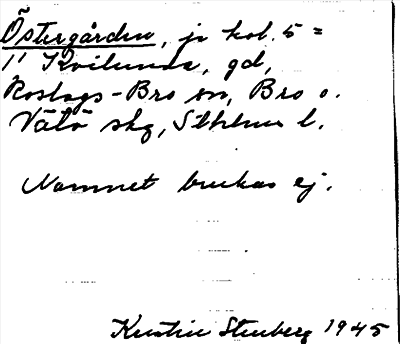 Östergården, jr kol. 5 =
1¹ Kvilunda, gd,
Roslags-Bro sn, Bro o.
Vätö skg, Sthlms l.
Namnet brukas ej.
Kerstin Stenberg 1945